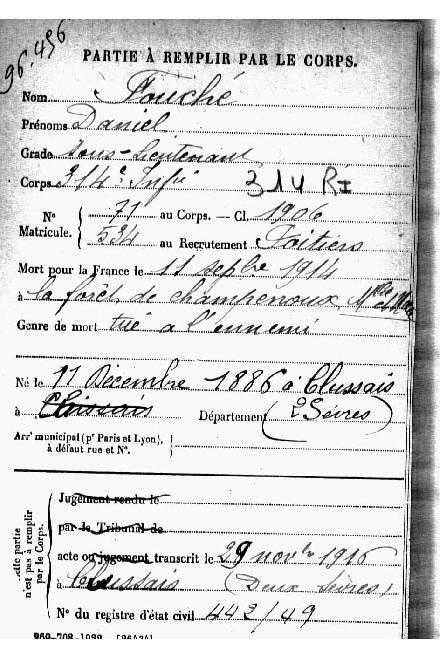 96.456
PARTIE À REMPLIR PAR LE CORPS.
Nom Fouché
Prénoms Daniel
Grade Sous-Lieutenant
Corps 314e Infie 314 RI
N° 71 au Corps. — Cl. 1906
Matricule. 534 au Recrutement Poitiers
Mort pour la France le 11 septbre 1914
à la forêt de champenoux Mthe et Melle
Genre de mort tué a l'ennemi
Né le 11 Décembre 1886 à Clussais
à Clussais Département (2 Sèvres)
Arrt municipal (pr Paris et Lyon),
à défaut rue et N°.
Cette partie
n'est pas à remplir
par le Corps.
Jugement rendu le
par le Tribunal de
acte ou jugement transcrit le 29 novbre 1916
à Clussais (Deux Sèvres)
N° du registre d'état civil 442/49